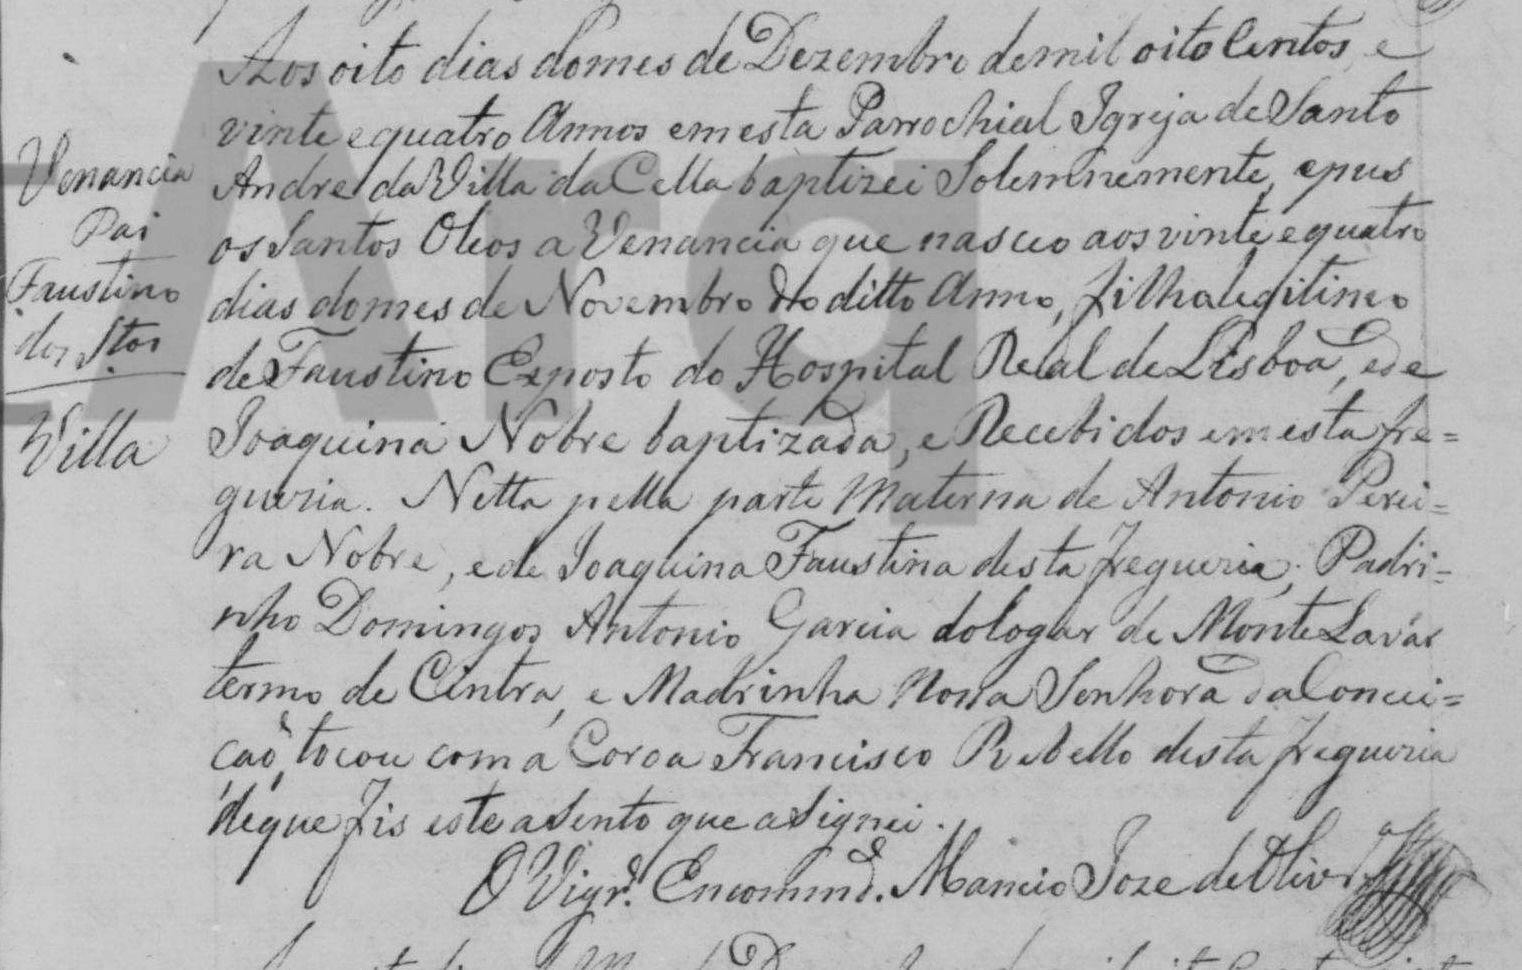 Venancia
Pai
Faustino
dos Stos
Villa
Aos oito dias do mes de Dezembro de mil oito Centos e
vinte e quatro Annos em esta Parrochial Igreja de Santo
Andre da Villa da Cella baptizei Solemnemente, e pus
os Santos Oleos a Venancia que nasceo aos vinte e quatro
dias do mes de Novembro do ditto Anno, filha legitima
de Faustino Exposto do Hospital Real de Lisboa, e de
Joaquina Nobre baptizada, e Recebidos em esta fre=
guezia. Netta pella parte Materna de Antonio Perei=
ra Nobre, e de Joaquina Faustina desta freguezia; Padri=
nho Domingos Antonio Garcia do logar de Monte Lavar
termo de Cintra, e Madrinha Nossa Senhora da Concei=
caõ, tocou com a Coroa Francisco Rebello desta freguezia
de que fis este asento que asignei.
O Vigr.º Encommd.º Mancio Joze de Olivr.ª
Arq